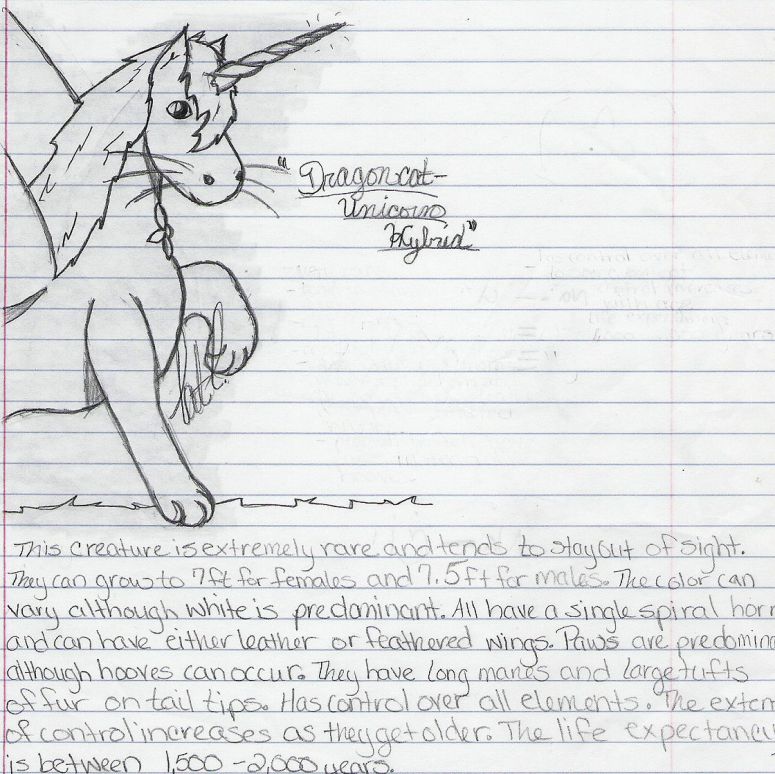 "Dragoncat-
Unicorn
Hybrid"
This creature is extremely rare and tends to stay out of sight.
They can grow to 7ft for females and 7.5ft for males. The color can
vary although white is predominant. All have a single spiral horn
and can have either leather or feathered wings. Paws are predomina
although hooves can occur. They have long manes and large tufts
of fur on tail tips. Has control over all elements. The exten
of control increases as they get older. The life expectancy
is between 1,500 - 2,000 years.